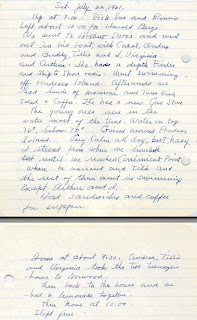 Sat. July 22, 1961.
Up at 7:00. Dick Eva and Ronnie
left about 10:00 for Harold Bergs.
We went to Hobarts Dores and went
out in his boat with Carol, Andrea
and Buddy, Tillie and I, Virginia
and Arthur. He has a depth finder
and Ship to Shore radio. Went swimming
off Prudence Island. Afterward we
had lunch of macaroni and Tuna fish
Salad & Coffee. He has a new Gas Stove
The young ones were in the
water most of the time. Water on top
76°, below 75°. Cruised around Prudence
Island. Very Calm all day, but hazy
I steered from where we lunched
till until we reached Conimicut Point
where he anchored and Tillie and
the rest of them went in swimming
Except Arthur and I.
Had Sandwiches and coffee
for supper.
Home at about 8:30. Andrea, Tillie
and Virginia took the two teenagers
home to Norwood.
Then back to the house and we
had a lemonade together.
Then home at 10:00
Slept fine